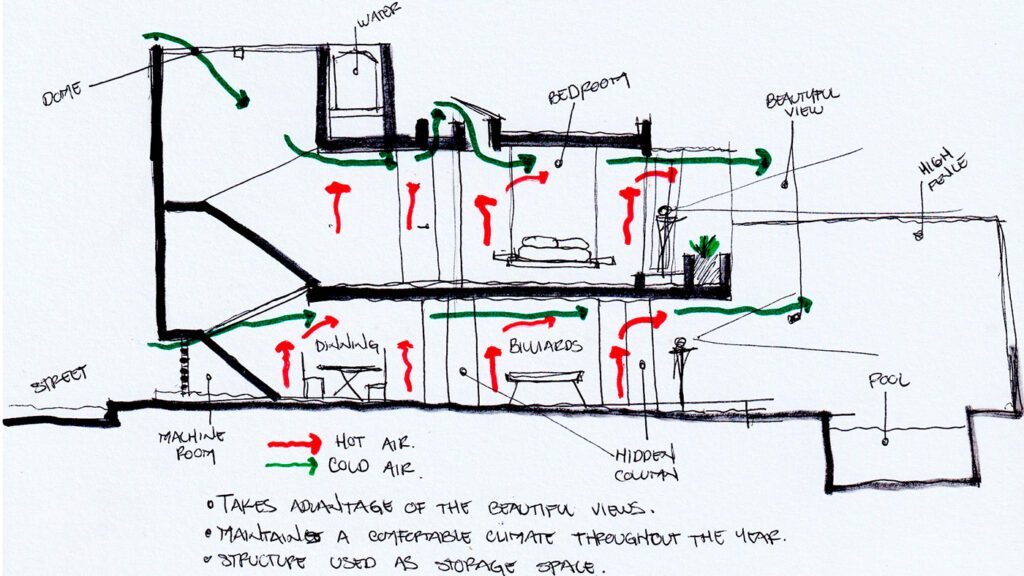 WATER
DOME
BEDROOM
BEAUTIFUL
VIEW
HIGH
FENCE
DINNING
BILLIARDS
STREET
POOL
MACHINE
ROOM
HOT AIR.
COLD AIR.
HIDDEN
COLUMN
• TAKES ADVANTAGE OF THE BEAUTIFUL VIEWS.
• MAINTAINS A COMFORTABLE CLIMATE THROUGHOUT THE YEAR.
• STRUCTURE USED AS STORAGE SPACE.